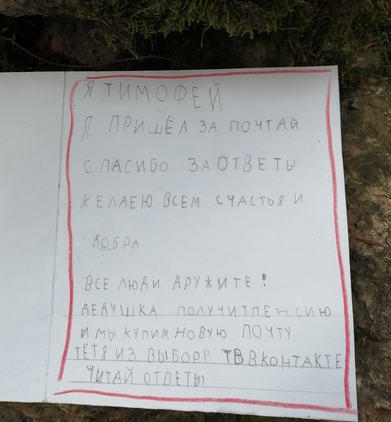 Я ТИМОФЕЙ
Я ПРИШЁЛ ЗА ПОЧТАЙ
СПАСИБО ЗА ОТВЕТЫ
ЖЕЛАЕЮ ВСЕМ СЧАСТЬЯ И
ДОБРА
ВСЕ ЛЮДИ ДРУЖИТЕ!
ДЕДУШКА ПОЛУЧИТ ПЕНСИЮ
И МЫ КУПИМ НОВУЮ ПОЧТУ
ТЁТЯ ИЗ ВЫБОРГ ТВ ВКОНТАКТЕ
ЧИТАЙ ОТВЕТЫ